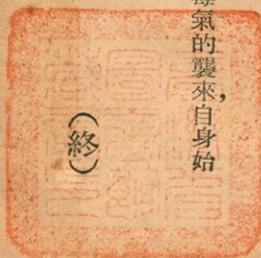 氣的襲來，自身始
（終）